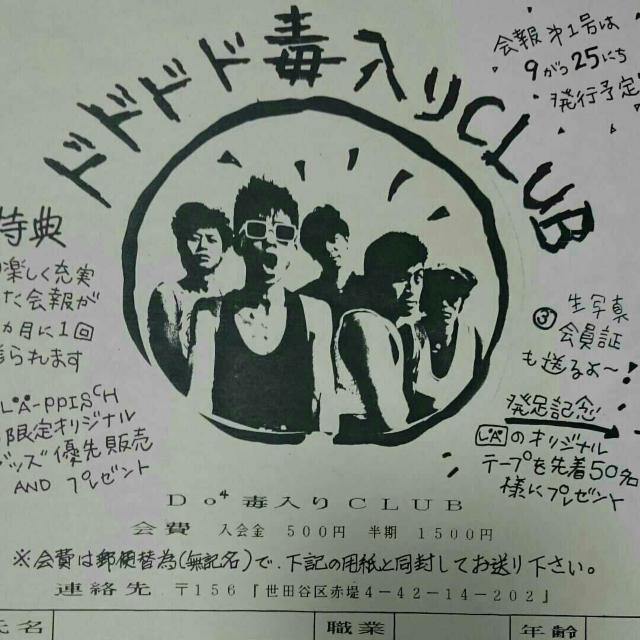 ドドドド毒入りCLUB
会報第1号は
9がつ25にち
発行予定
特典
楽しく充実
た会報が
ヵ月に1回
られます
LÄ-PPISCH
限定オリジナル
グッズ優先販売
AND プレゼント
③ 生写真
会員証
も送るよ〜!
発足記念
のオリジナル
テープを先着50名
様にプレゼント
Do⁴毒入りCLUB
会費 入会金 500円 半期 1500円
※会費は郵便替為(無記名)で、下記の用紙と同封してお送り下さい。
連絡先 〒156『世田谷区赤堤4-42-14-202』
氏名 職業 年齢